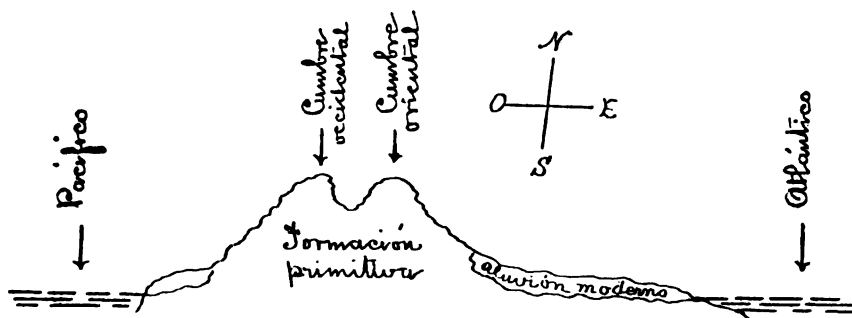 Pacífico
Cumbre
occidental
Cumbre
oriental
N
O
E
S
Atlántico
Formación
primitiva
aluvión moderno